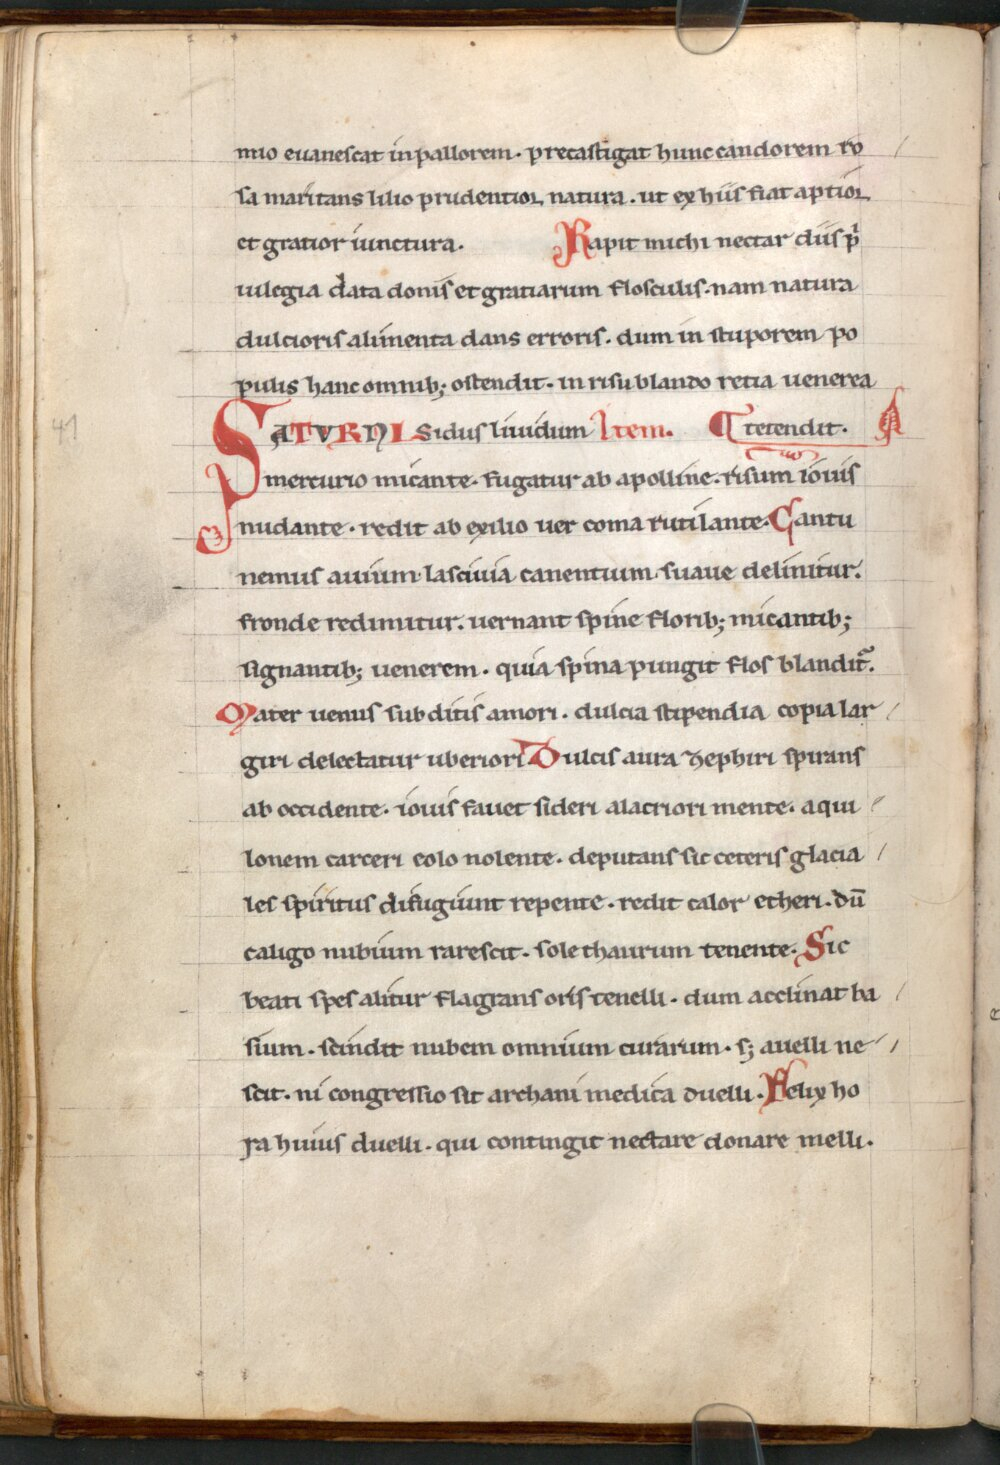 mio euanescat in pallorem. precastigat hunc candorem ro
sa maritans lilio prudentior natura. ut ex hiis fiat aptior
et gratior iunctura. Rapit michi nectar diis pͥ
uilegia data donis et gratiarum flosculis. nam natura
dulcioris alimenta dans erroris. dum in stuporem po
pulis hanc omnib; ostendit. in risu blando retia uenerea
SATVRNI sidus liuidum Item. tetendit. A
41
mercurio micante. fugatur ab apolline. risum iouis
nudante. redit ab exilio uer coma rutilante. Cantu
nemus auium lasciuia canentium suaue delinitur.
fronde redimitur. uernant spine florib; micantib;
signantib; uenerem. quia spina pungit flos blandit᷑.
Mater uenus subditis amori. dulcia stipendia copia lar
giri delectatur uberiori Dulcis aura zephiri spirans
ab occidente. iouis fauet sideri alacriori mente. aqui
lonem carceri eolo nolente. deputans sic ceteris glacia
les spiritus difugiunt repente. redit calor etheri. dū
caligo nubium rarescit. sole thaurum tenente. Sic
beati spes alitur flagrans oris tenelli. dum acclinat ba
sium. scindit nubem omnium curarum. s; auelli ne
scit. ni congressio sit archani medica duelli. Felix ho
ra huius duelli. qui contingit nectare donare melli.